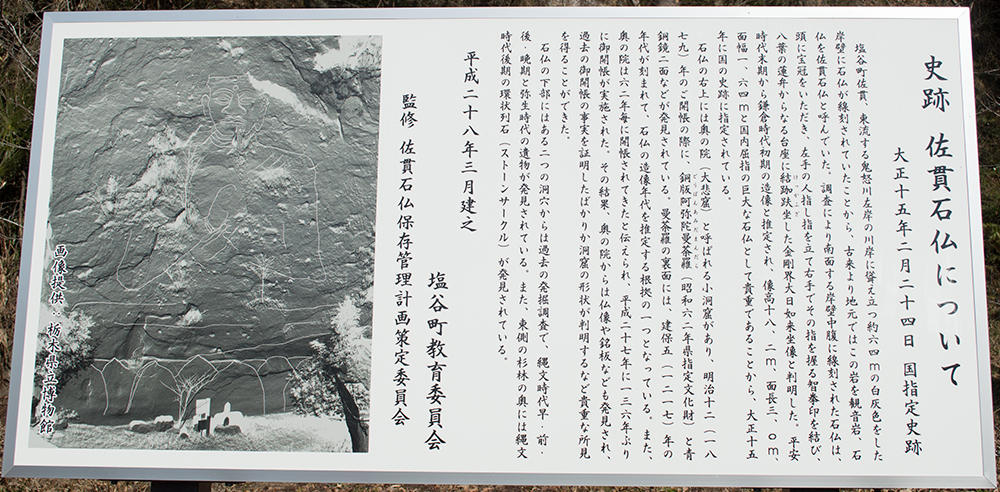 史跡 佐貫石仏について
大正十五年二月二十四日 国指定史跡
塩谷町佐貫、東流する鬼怒川左岸の川岸に聳え立つ約六四mの白灰色をした
岸壁に石仏が線刻されていたことから、古来より地元ではこの岩を観音岩、石
仏を佐貫石仏と呼んでいた。調査により南面する岸壁中腹に線刻された石仏は、
頭に宝冠をいただき、左手の人指し指を立て右手でその指を握る智拳印を結び、
八葉の蓮弁からなる台座に結跏趺坐した金剛界大日如来坐像と判明した。平安
けっかふざ
時代末期から鎌倉時代初期の造像と推定され、像高十八、二m、面長三、〇m、
面幅一、六四mと国内屈指の巨大な石仏として貴重であることから、大正十五
年に国の史跡に指定されている。
石仏の右上には奥の院（大悲窟）と呼ばれる小洞窟があり、明治十二（一八
七九）年のご開帳の際に、銅版阿弥陀曼荼羅（昭和六二年県指定文化財）と青
どうばんあみだまんだら
銅鏡二面などが発見されている。曼荼羅の裏面には、建保五（一二一七）年の
年代が刻まれて、石仏の造像年代を推定する根拠の一つとなっている。また、
奥の院は六二年毎に開帳されてきたと伝えられ、平成二十七年に一三六年ぶり
に御開帳が実施された。その結果、奥の院からは仏像や銘板なども発見され、
過去の御開帳の事実を証明したばかりか洞窟の形状が判明するなど貴重な所見
を得ることができた。
石仏の下部にはある二つの洞穴からは過去の発掘調査で、縄文時代早・前・
後・晩期と弥生時代の遺物が発見されている。また、東側の杉林の奥には縄文
時代後期の環状列石（ストーンサークル）が発見されている。
平成二十八年三月建之
塩谷町教育委員会
監修 佐貫石仏保存管理計画策定委員会
画像提供：栃木県立博物館